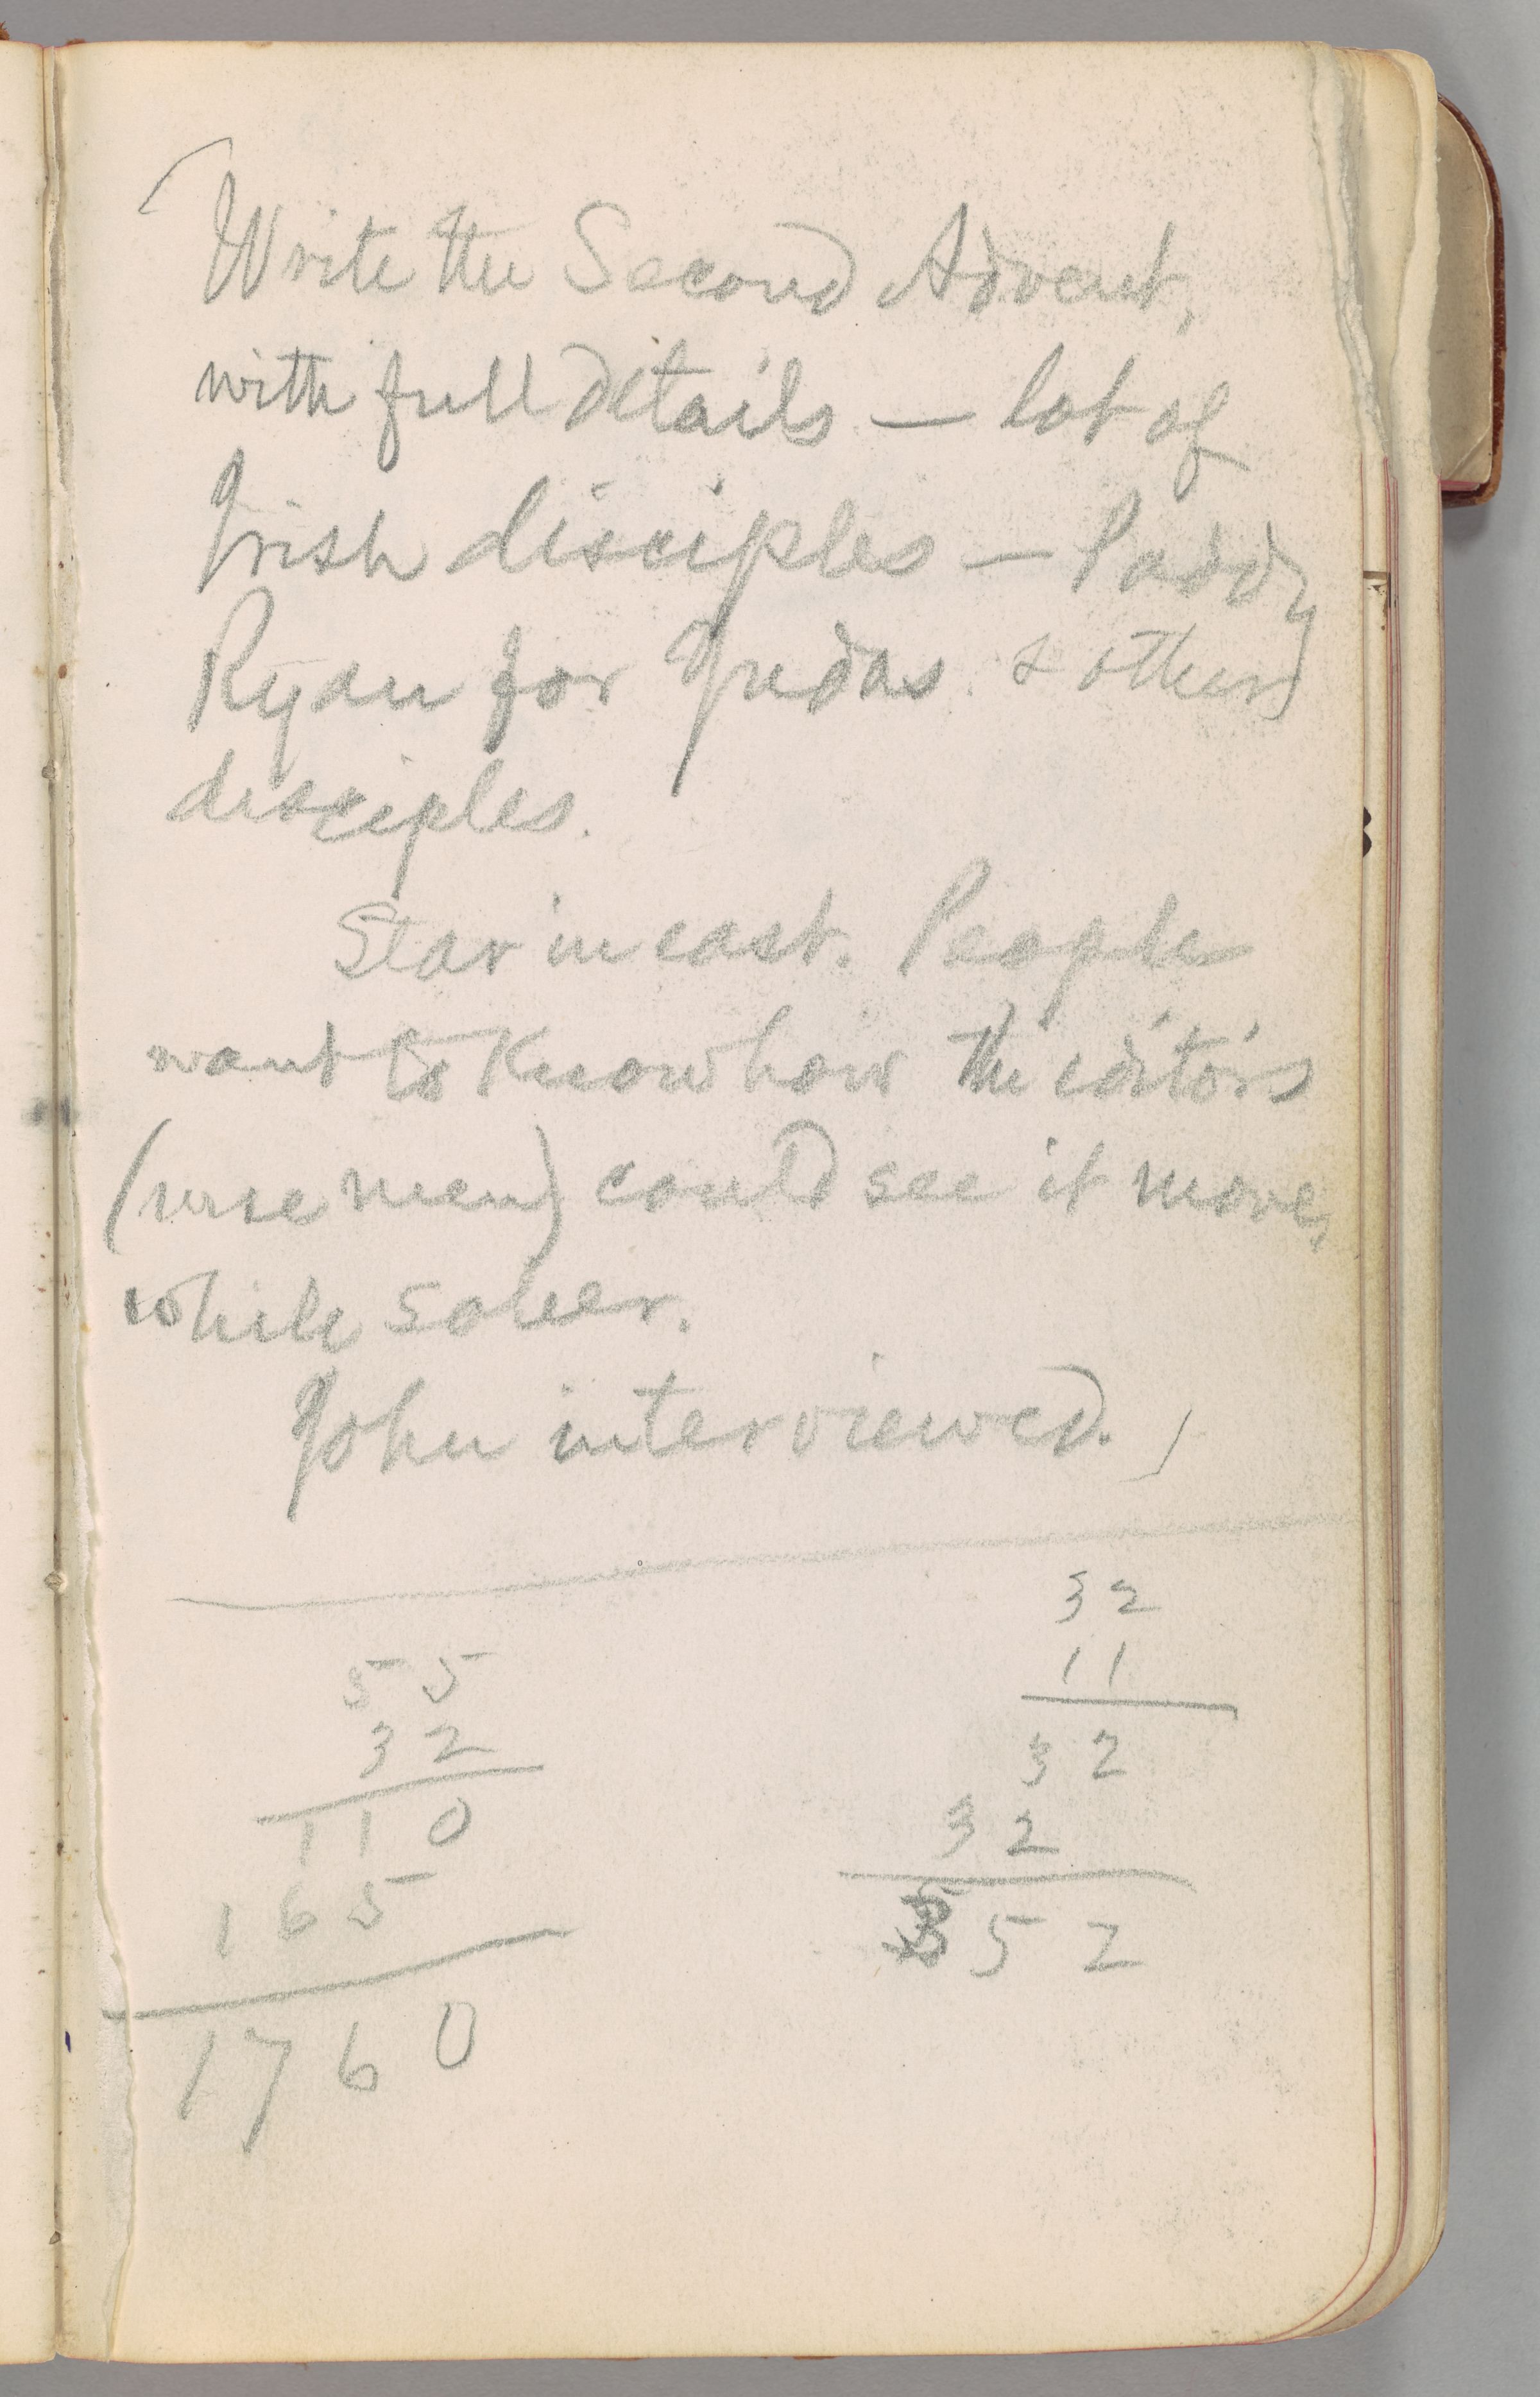 Write the Second Advent,
with full details — lot of
Irish disciples — Paddy
Ryan for Judas & other
disciples.
Star in east. People
want to know how the editors
(wise men) could see it move,
while sober.
John interviewed.
55
32
110
165
1760
32
11
32
32
352